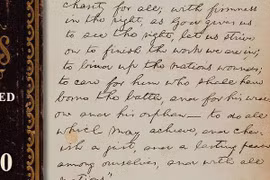 S
ED
0
charity for all; with firmness
in the right, as God gives us
to see the right, let us strive
on to finish the work we are in;
to bind up the nation's wounds;
to care for him who shall have
borne the battle, and for his
ow and his orphan— to do all
which may achieve, and cher-
ish a just, and a lasting peace
among ourselves, and with all
nations"